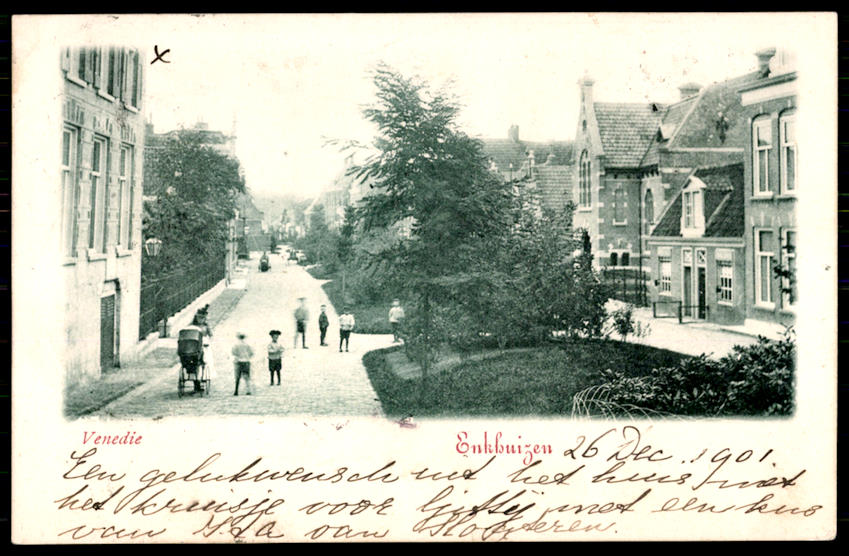 x
Venedie
Enkhuizen 26 Dec. 1901
Een gelukwensch uit het huis met
het kruisje voor met een kus
van Ida van